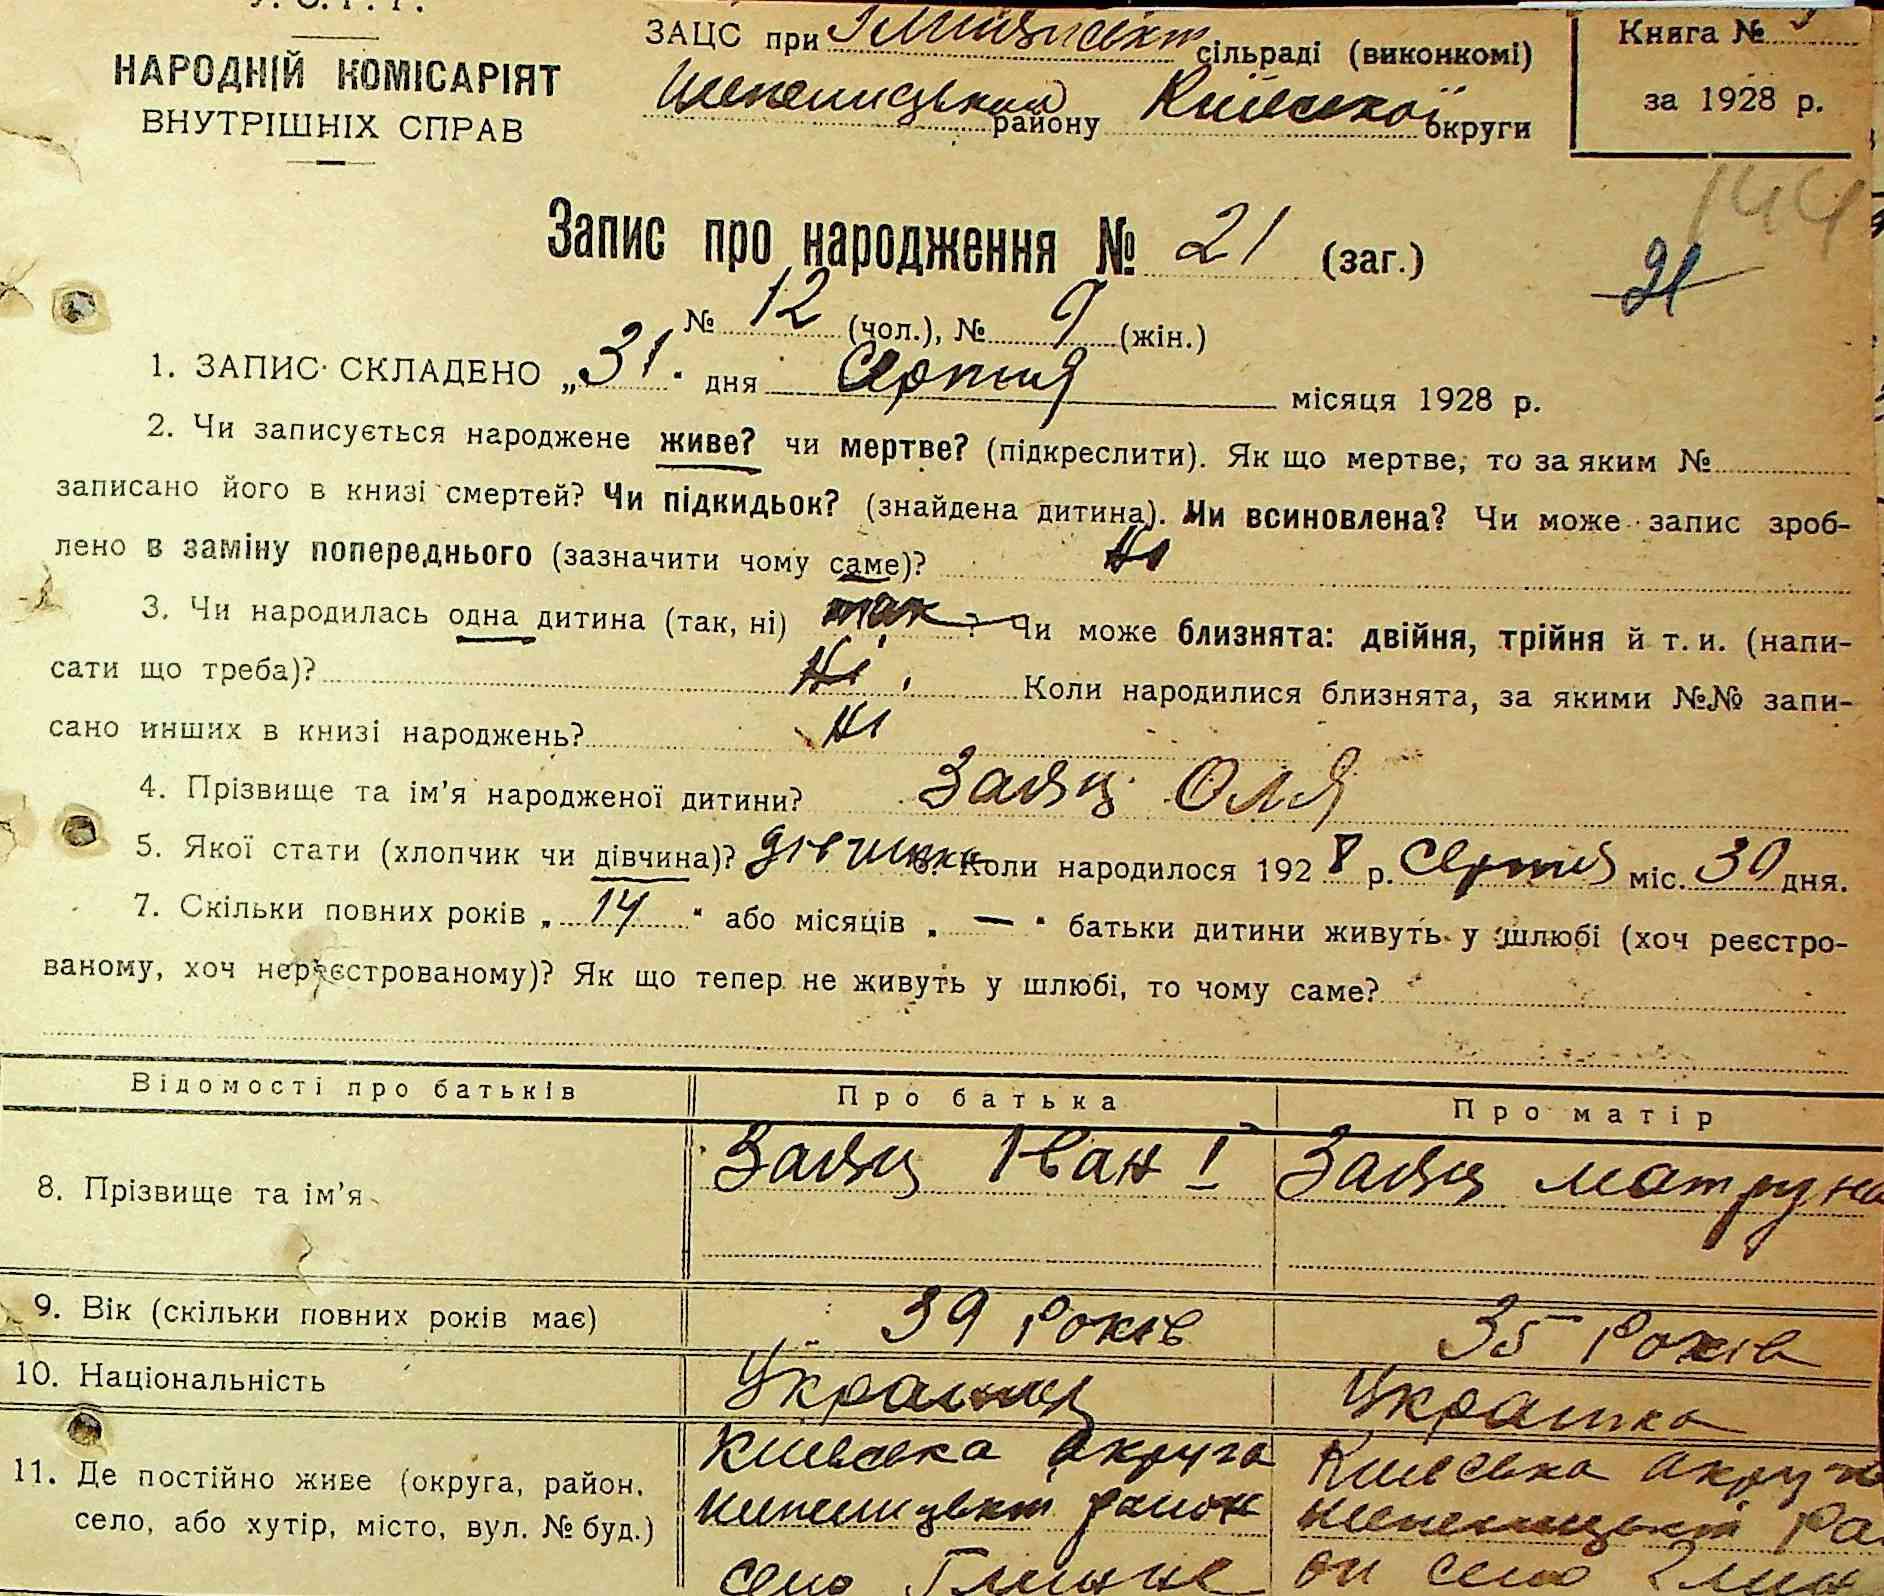 У. С. Р. Р.
НАРОДНІЙ КОМІСАРІЯТ
ВНУТРІШНІХ СПРАВ
ЗАЦС при сільраді (виконкомі)
району Київської округи
Книга №
за 1928 р.
144
Запис про народження № 21 (заг.)
21
№ 12 (чол.), № 9 (жін.)
1. ЗАПИС СКЛАДЕНО „31" дня Серпня місяця 1928 р.
2. Чи записується народжене живе? чи мертве? (підкреслити). Як що мертве, то за яким №
записано його в книзі смертей? Чи підкидьок? (знайдена дитина). Чи всиновлена? Чи може запис зроб-
лено в заміну попереднього (зазначити чому саме)? Ні
3. Чи народилась одна дитина (так, ні) так ? Чи може близнята: двійня, трійня й т. и. (напи-
сати що треба)? Ні. Коли народилися близнята, за якими №№ запи-
сано инших в книзі народжень? Ні
4. Прізвище та ім'я народженої дитини? Заяць Оля
5. Якої стати (хлопчик чи дівчина)? дівчинка 6. Коли народилося 1928 р. Серпня міс. 30 дня.
7. Скільки повних років „14" або місяців „—" батьки дитини живуть у шлюбі (хоч реєстро-
ваному, хоч нереєстрованому)? Як що тепер не живуть у шлюбі, то чому саме?
Відомості про батьків Про батька Про матір
8. Прізвище та ім'я Заяць Іван І Заяць Мотруна
9. Вік (скільки повних років має) 39 Років 35 Років
10. Національність Українец Українка
11. Де постійно живе (округа, район, село, або хутір, місто, вул. № буд.)
Київська округа
район
село
Київська округа
село